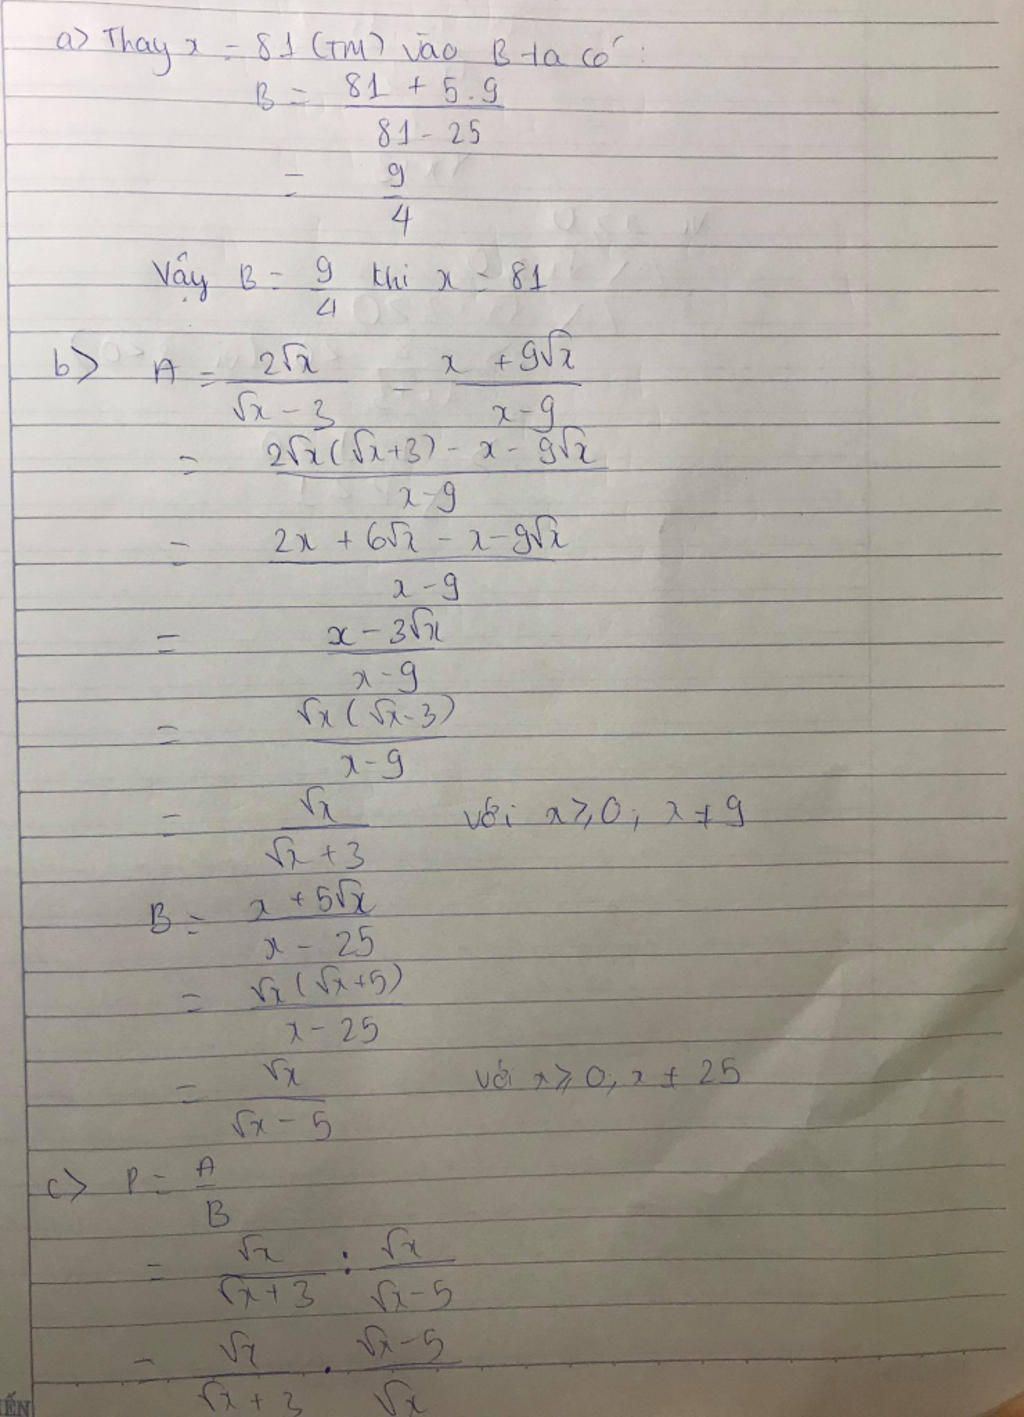 a) Thay x = 81 (TM) vào B ta có :
B = (81 + 5.9)/(81 - 25)
= 9/4
Vậy B = 9/4 khi x = 81
b) A = 2√x/(√x - 3) - (x + 9√x)/(x - 9)
= (2√x(√x+3) - x - 9√x)/(x - 9)
= (2x + 6√x - x - 9√x)/(x - 9)
= (x - 3√x)/(x - 9)
= √x(√x - 3)/(x - 9)
= √x/(√x + 3) với x ≥ 0; x ≠ 9
B = (x + 5√x)/(x - 25)
= √x(√x+5)/(x - 25)
= √x/(√x - 5) với x ≥ 0; x ≠ 25
c) P = A/B
= √x/(√x+3) : √x/(√x-5)
= √x/(√x + 3) . (√x-5)/√x
ẾN